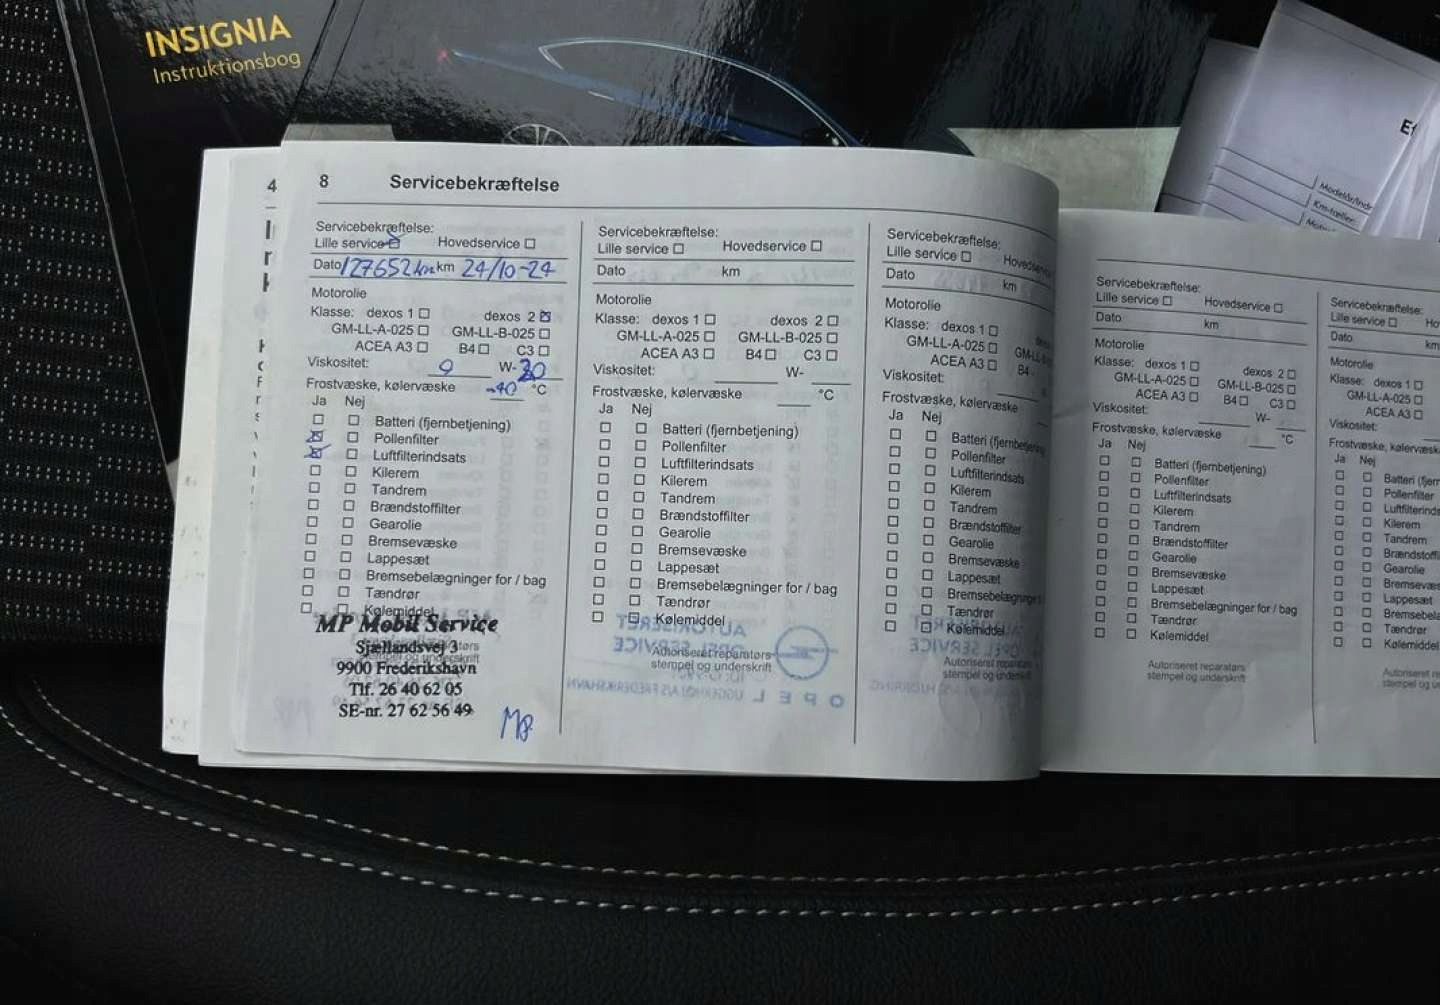 INSIGNIA
Instruktionsbog
4
8 Servicebekræftelse
Servicebekræftelse:
Lille service ☒ Hovedservice ☐
Dato 127652 km km 24/10-24
Motorolie
Klasse: dexos 1 ☐ dexos 2 ☒
GM-LL-A-025 ☐ GM-LL-B-025 ☐
ACEA A3 ☐ B4 ☐ C3 ☐
Viskositet: 0 W- 20
Frostvæske, kølervæske -40 °C
Ja Nej
☐ ☐ Batteri (fjernbetjening)
☒ ☐ Pollenfilter
☒ ☐ Luftfilterindsats
☐ ☐ Kilerem
☐ ☐ Tandrem
☐ ☐ Brændstoffilter
☐ ☐ Gearolie
☐ ☐ Bremsevæske
☐ ☐ Lappesæt
☐ ☐ Bremsebelægninger for / bag
☐ ☐ Tændrør
☐ ☐ Kølemiddel
MP Mobil Service
Sjællandsvej 3
9900 Frederikshavn
Tlf. 26 40 62 05
SE-nr. 27 62 56 49
Servicebekræftelse:
Lille service ☐ Hovedservice ☐
Dato km
Motorolie
Klasse: dexos 1 ☐ dexos 2 ☐
GM-LL-A-025 ☐ GM-LL-B-025 ☐
ACEA A3 ☐ B4 ☐ C3 ☐
Viskositet: W-
Frostvæske, kølervæske °C
Ja Nej
☐ ☐ Batteri (fjernbetjening)
☐ ☐ Pollenfilter
☐ ☐ Luftfilterindsats
☐ ☐ Kilerem
☐ ☐ Tandrem
☐ ☐ Brændstoffilter
☐ ☐ Gearolie
☐ ☐ Bremsevæske
☐ ☐ Lappesæt
☐ ☐ Bremsebelægninger for / bag
☐ ☐ Tændrør
☐ ☐ Kølemiddel
Autoriseret reparatørs
stempel og underskrift
Servicebekræftelse:
Lille service ☐
Dato km
Motorolie
Klasse: dexos 1 ☐
GM-LL-A-025 ☐
ACEA A3 ☐ B4
Viskositet:
Frostvæske, kølervæske
Ja Nej
☐ ☐ Batteri
☐ ☐ Pollenfilter
☐ ☐ Luftfilterindsats
☐ ☐ Kilerem
☐ ☐ Tandrem
☐ ☐ Brændstoffilter
☐ ☐ Gearolie
☐ ☐ Bremsevæske
☐ ☐ Lappesæt
☐ ☐ Bremsebelægninger
☐ ☐ Tændrør
☐ ☐ Kølemiddel
Autoriseret
stempel og underskrift
Servicebekræftelse:
Lille service ☐ Hovedservice ☐
Dato km
Motorolie
Klasse: dexos 1 ☐ dexos 2 ☐
GM-LL-A-025 ☐ GM-LL-B-025 ☐
ACEA A3 ☐ B4 ☐ C3 ☐
Viskositet: W-
Frostvæske, kølervæske °C
Ja Nej
☐ ☐ Batteri (fjernbetjening)
☐ ☐ Pollenfilter
☐ ☐ Luftfilterindsats
☐ ☐ Kilerem
☐ ☐ Tandrem
☐ ☐ Brændstoffilter
☐ ☐ Gearolie
☐ ☐ Bremsevæske
☐ ☐ Lappesæt
☐ ☐ Bremsebelægninger for / bag
☐ ☐ Tændrør
☐ ☐ Kølemiddel
Autoriseret reparatørs
stempel og underskrift
Servicebekræftelse:
Lille service ☐
Dato km
Motorolie
Klasse: dexos 1 ☐
GM-LL-A-025 ☐
ACEA A3 ☐
Viskositet:
Frostvæske,
Ja Nej
☐ ☐ Batteri
☐ ☐ Pollenfilter
☐ ☐ Luftfilterinds
☐ ☐ Kilerem
☐ ☐ Tandrem
☐ ☐ Brændstoffi
☐ ☐ Gearolie
☐ ☐ Bremsevæs
☐ ☐ Lappesæt
☐ ☐ Bremsebela
☐ ☐ Tændrør
☐ ☐ Kølemiddel